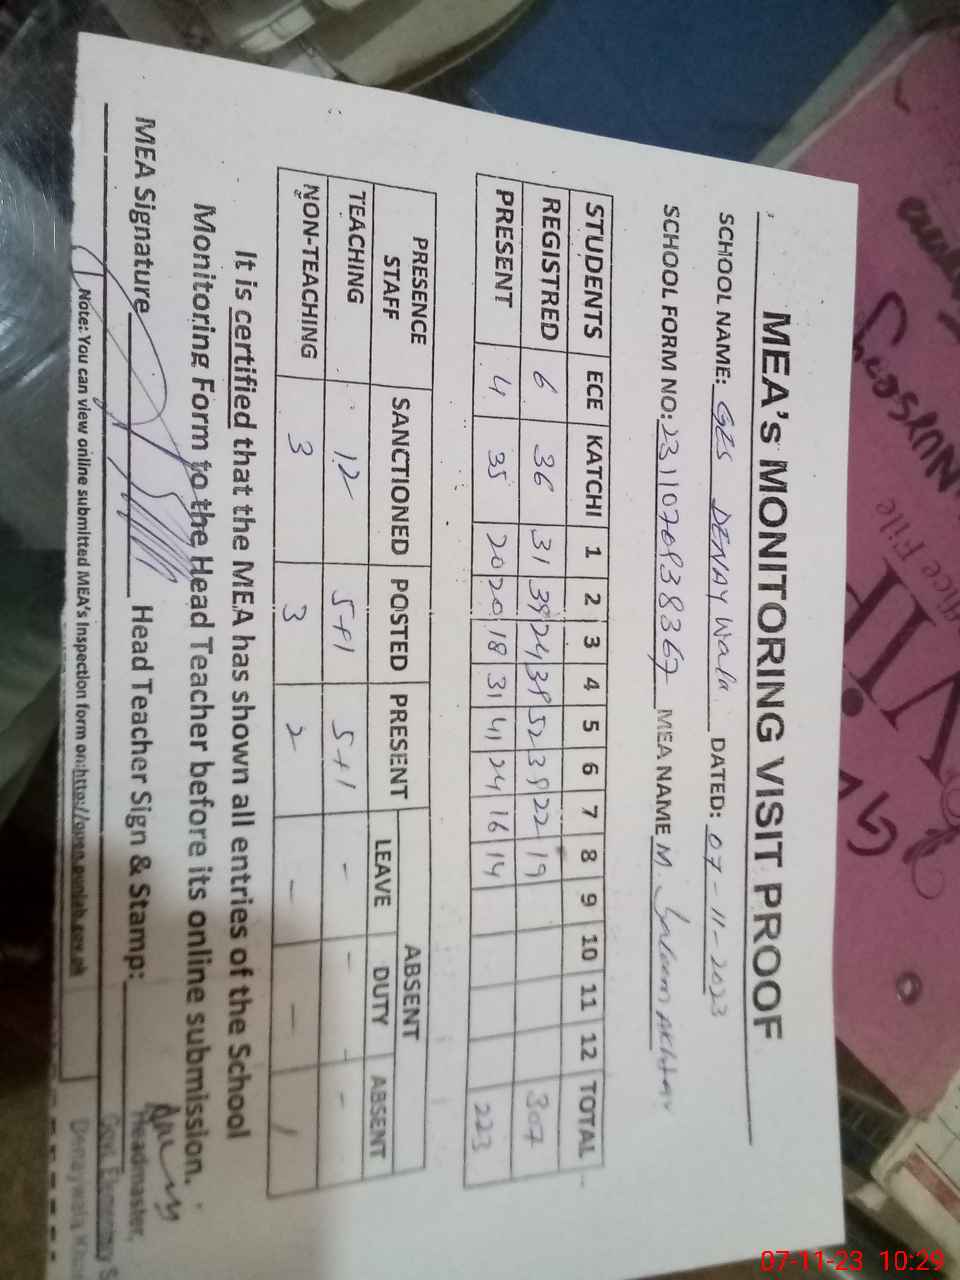 MEA's MONITORING VISIT PROOF
SCHOOL NAME: GES DENAY Wala DATED: 07-11-2023
SCHOOL FORM NO: 2311070838367 MEA NAME M. Saleem Akhtar
STUDENTS ECE KATCHI 1 2 3 4 5 6 7 8 9 10 11 12 TOTAL
REGISTRED 6 36 31 39 24 39 52 38 22 19 307
PRESENT 4 35 20 20 18 31 41 24 16 14 223
PRESENCE STAFF SANCTIONED POSTED PRESENT ABSENT
LEAVE DUTY ABSENT
TEACHING 12 5+1 5+1 - - -
NON-TEACHING 3 3 2 - - 1
It is certified that the MEA has shown all entries of the School
Monitoring Form to the Head Teacher before its online submission.
MEA Signature Head Teacher Sign & Stamp:
Headmaster,
Govt. Elementary S
Denaywala
Note: You can view online submitted MEA's inspection form on:http://open.punjab.gov.pk
VIP
Office File
07-11-23 10:29